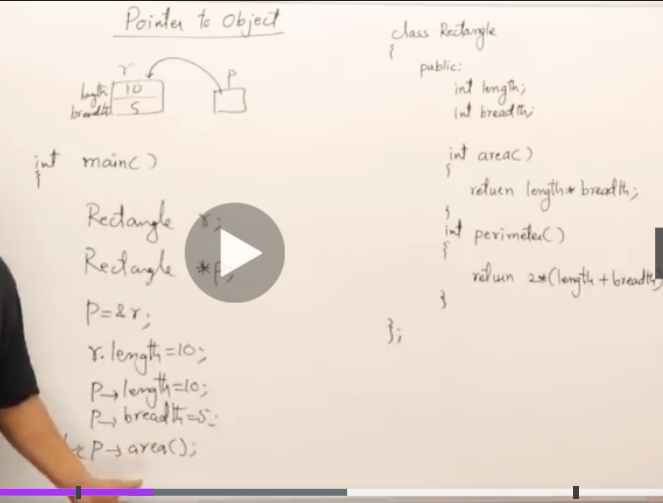 Pointer to Object
r
p
length 10
breadth 5
int main()
{
Rectangle r;
Rectangle *p;
P=&r;
r.length=10;
P→length=10;
P→breadth=5;
P→area();
class Rectangle
{
public:
int length;
int breadth;
int area()
{
return length*breadth;
}
int perimeter()
{
return 2*(length+breadth)
}
};